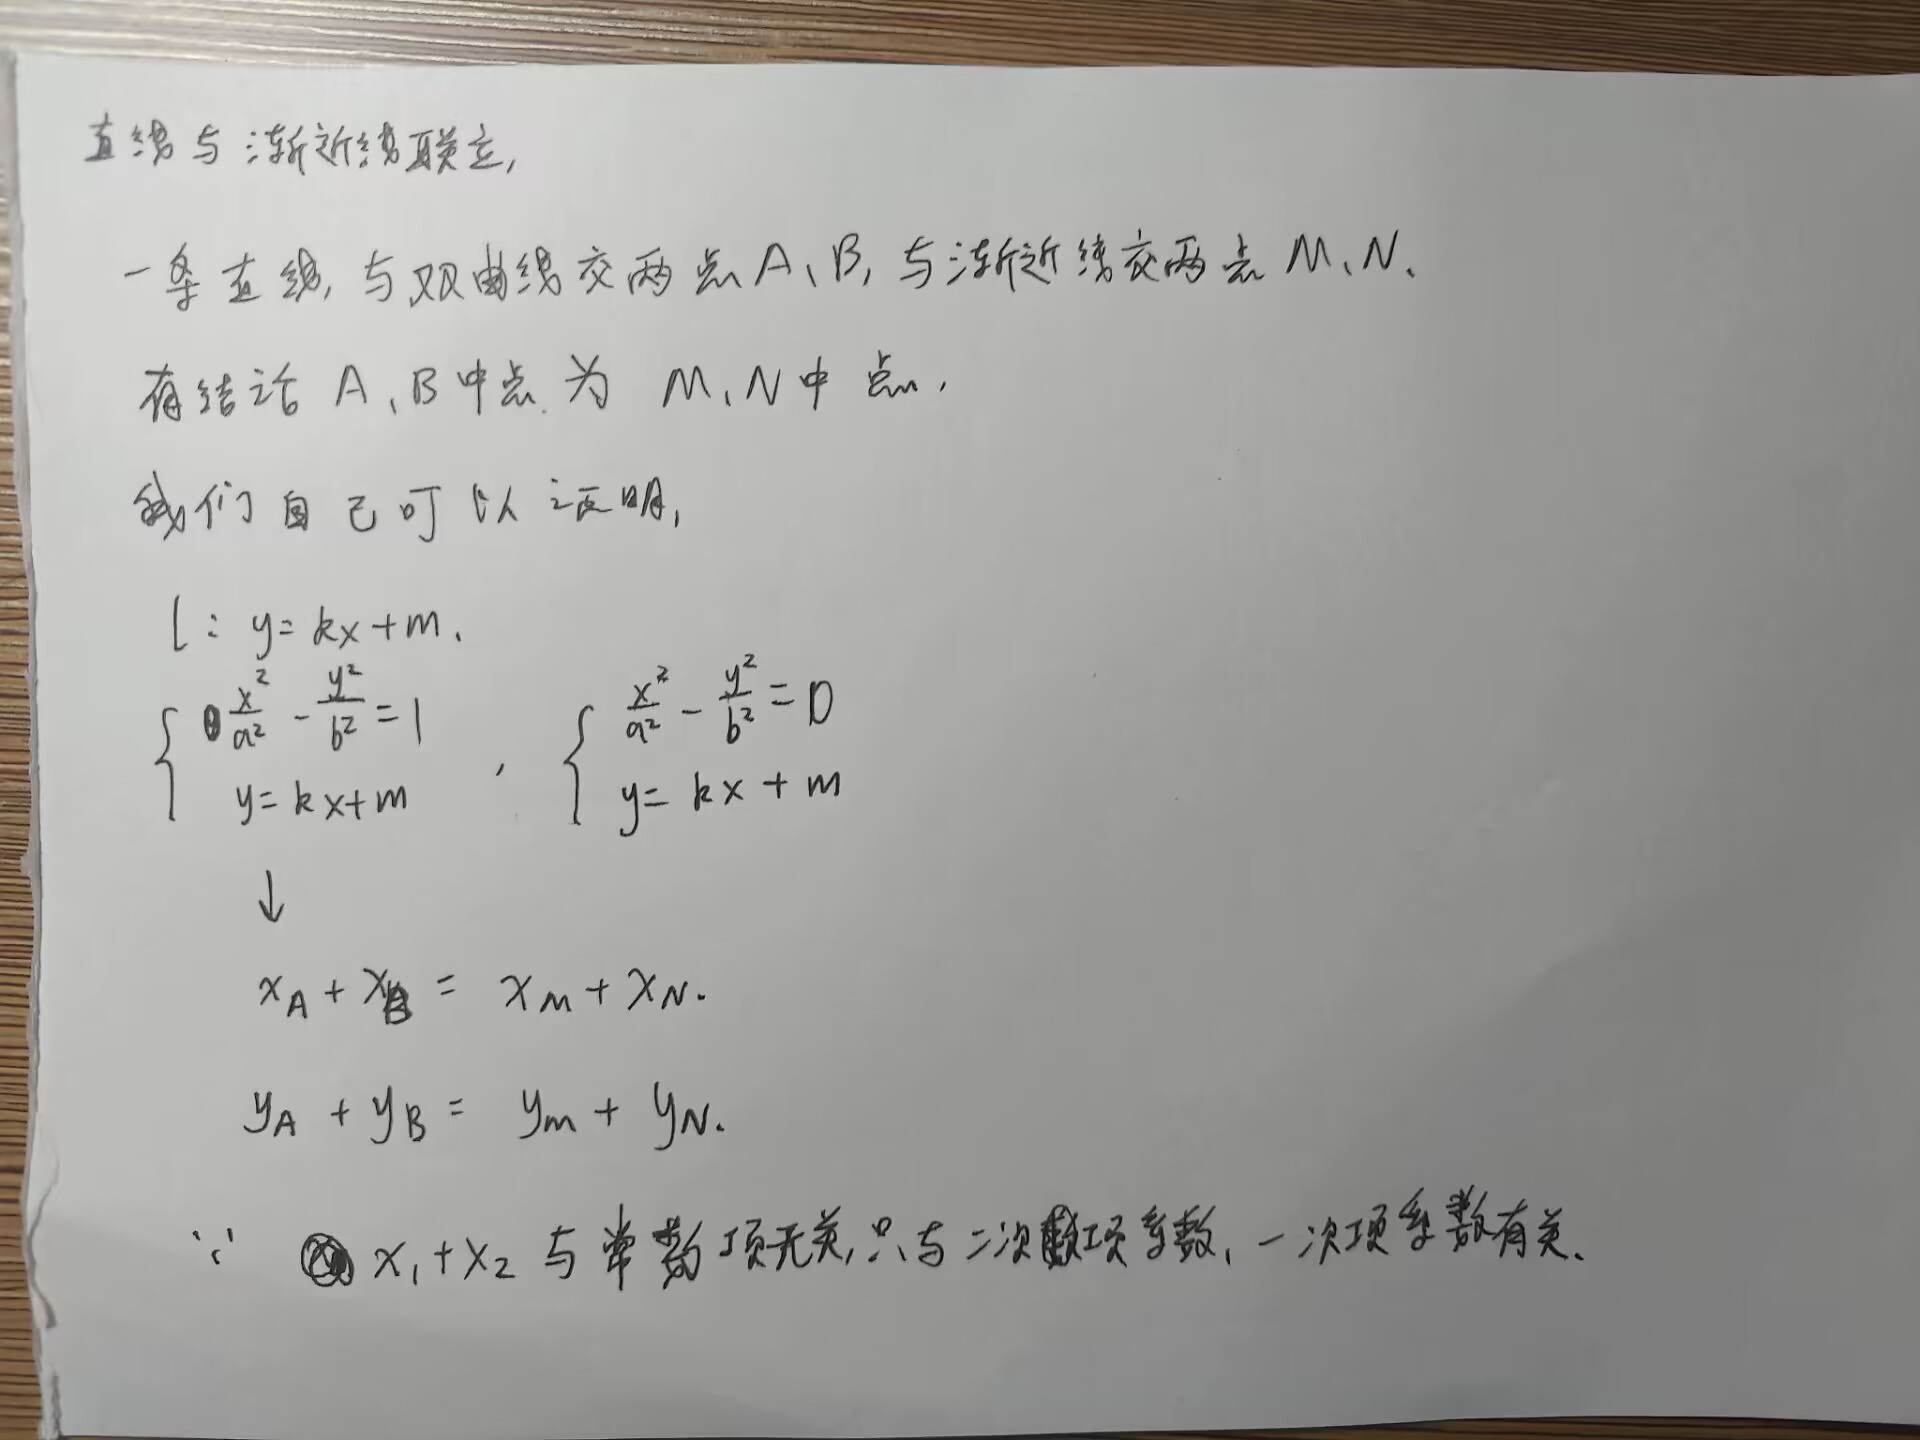 直线与渐近线联立,
一条直线,与双曲线交两点A、B,与渐近线交两点M、N.
有结论A、B中点为M、N中点.
我们自己可以证明,
l: y=kx+m.
{ x²/a² - y²/b² = 1 , { x²/a² - y²/b² = 0
y=kx+m y=kx+m
↓
x_A + x_B = x_M + x_N.
y_A + y_B = y_m + y_N.
∵ x₁+x₂与常数项无关,只与二次项系数、一次项系数有关.